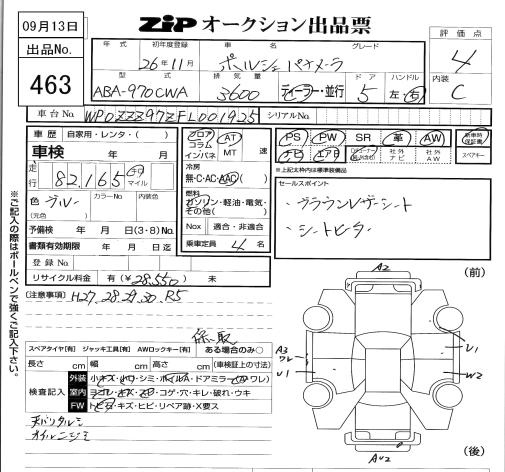 09月13日
出品No.
463
ZIP オークション出品票
評価点
4
内装
C
年式 初年度登録 車名 グレード
26年11月 ポルシェパナメーラ
型式 排気量 ドア ハンドル
ABA-970CWA 3600 ディーラー・並行 5 左・右
車台No. WP0ZZZ97ZFL001925 シリアルNo.
車歴 自家用・レンタ・( )
車検 年 月
走行 82,165 km マイル
色 ブルー カラーNo. 内装色
(元色)
予備検 年 月 日(3・8)No.
書類有効期限 年 月 日迄
登録No.
リサイクル料金 有(¥28,550) 未
フロア コラム インパネ
AT
MT 速
冷房
無・C・AC・AAC( )
燃料
ガソリン・軽油・電気・
その他( )
Nox 適合・非適合
乗車定員 4 名
PS PW SR 革 AW 新車時保証書
ナビ エアB 社外ナビ 社外AW スペアキー
※上記太枠内は標準装備品
セールスポイント
・ブラウンレザーシート
・シートヒーター
(注意事項) H27.28.29.30 R5
保 取
スペアタイヤ[有] ジャッキ工具[有] AWロックキー[有] ある場合のみ○
長さ cm 幅 cm 高さ cm (車検証上の寸法)
検査記入
外装 小キズ・凹・シミ・ホイルA・ドアミラー(A・ワレ)
室内 ヨゴレ・キズ・スレ・コゲ・穴・キレ・破れ・ウキ
FW トビ石・キズ・ヒビ・リペア跡・X要ス
天バリタルミ
オイルニジミ
※ご記入の際はボールペンで強くご記入下さい。
A2
(前)
A3
ワレ
U1
U1
W2
AU2
(後)